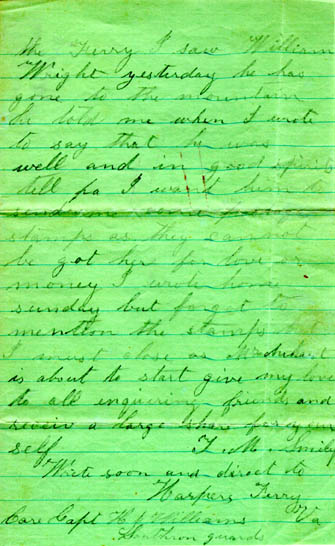 the Ferry I saw William
Wright yesterday he has
gone to the mountain
he told me when I wrote
to say that he was
well and in good spirits
tell pa I want him to
send me some postage
stamps as they cannot
be got here for love or
money I wrote home
sunday but forgot to
mention the stamps
I must close as
is about to start give my love
to all enquiring friends and
a large share for your
self T. M. Smiley
Write soon and direct to
Harpers Ferry
Care Capt H J Williams Va
Southron guards